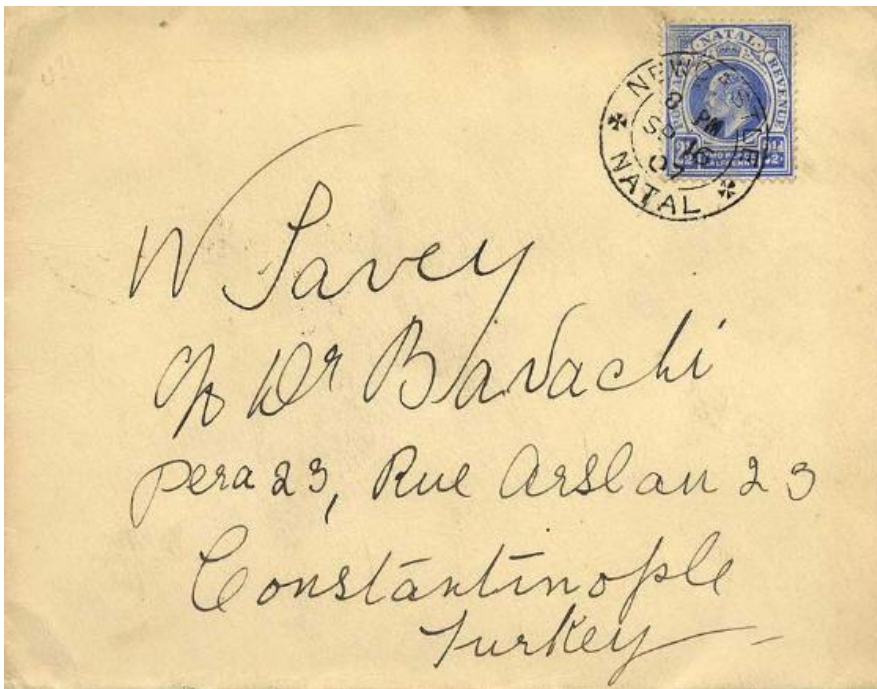 NATAL
POSTAGE REVENUE
2½d 2½d
TWO PENCE
HALFPENNY
NEWCASTLE
8 PM
SP 16
07
NATAL
W Savey
c/o Dr Bavachi
Pera 23, Rue Arslan 23
Constantinople
Turkey